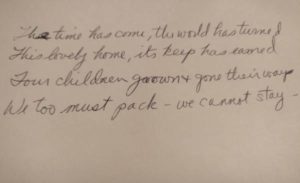 The time has come, the world has turned
This lovely home, its keep has earned
Four children grown & gone their ways
We too must pack - we cannot stay -